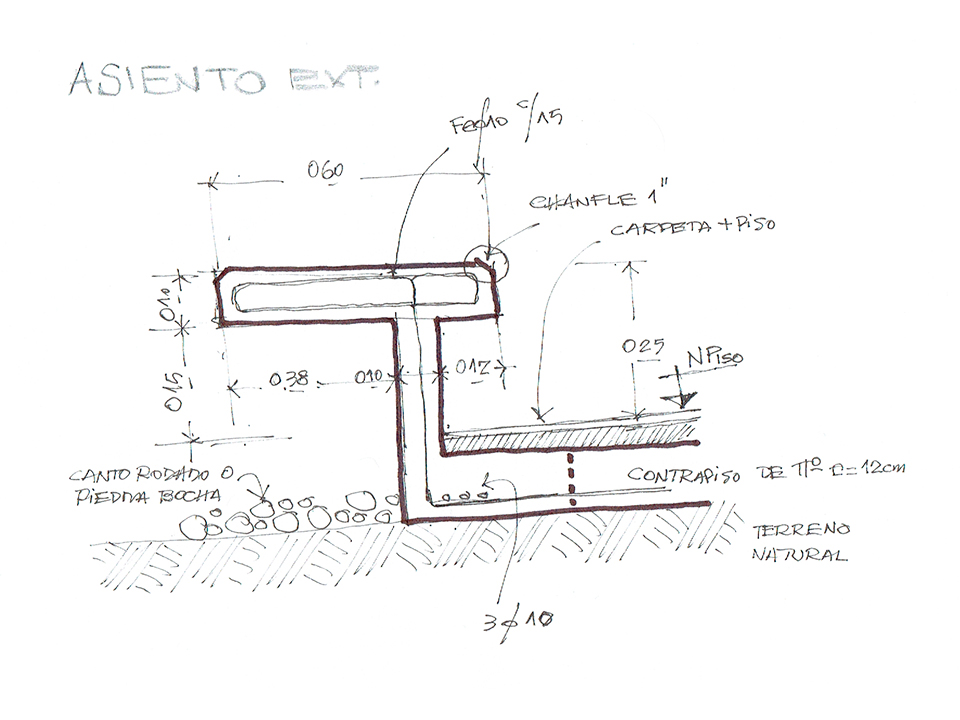 ASIENTO EXT.
Feφ10 c/15
060
CHANFLE 1"
CARPETA + PISO
010
015
025
N PISO
038
010
012
CANTO RODADO O
PIEDRA BOCHA
CONTRAPISO DE Hº e=12cm
TERRENO
NATURAL
3φ10